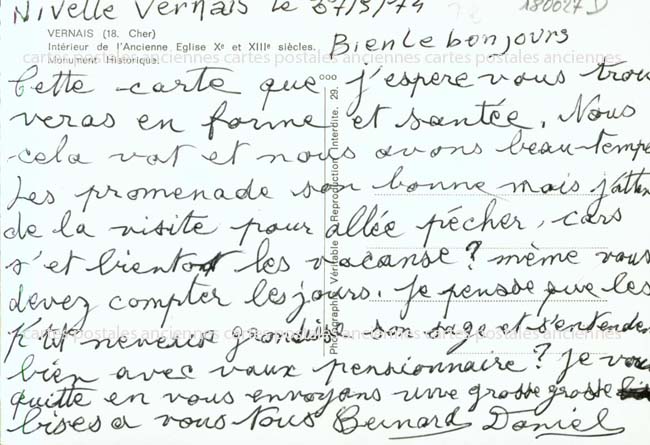 Nivelle Vernais le 27/5/74
180027 D
VERNAIS (18. Cher)
Intérieur de l'Ancienne Eglise Xe et XIIIe siècles.
Monument Historique.
Bien le bonjours
cartes postales anciennes cartes postales anciennes cartes postales anciennes
Cette carte que j'espere vous trou
veras en forme et santée. Nous
cela vat et nous avons beau-temps
Les promenade son bonne mais j'atten
de la visite pour allée pécher, cars
s'et bientot les vacanse? même vous
devez compter les jours. Je pensse que les
p'tit neveux grandisse son sage et s'entendes
cartes postales anciennes cartes postales anciennes cartes postales anciennes
bien avec vaux pensionnaire? Je vous
quitte en vous envoyons une grosse grosse
bises a vous tous Bernard Daniel
Photographie Véritable - Reproduction Interdite. 29.